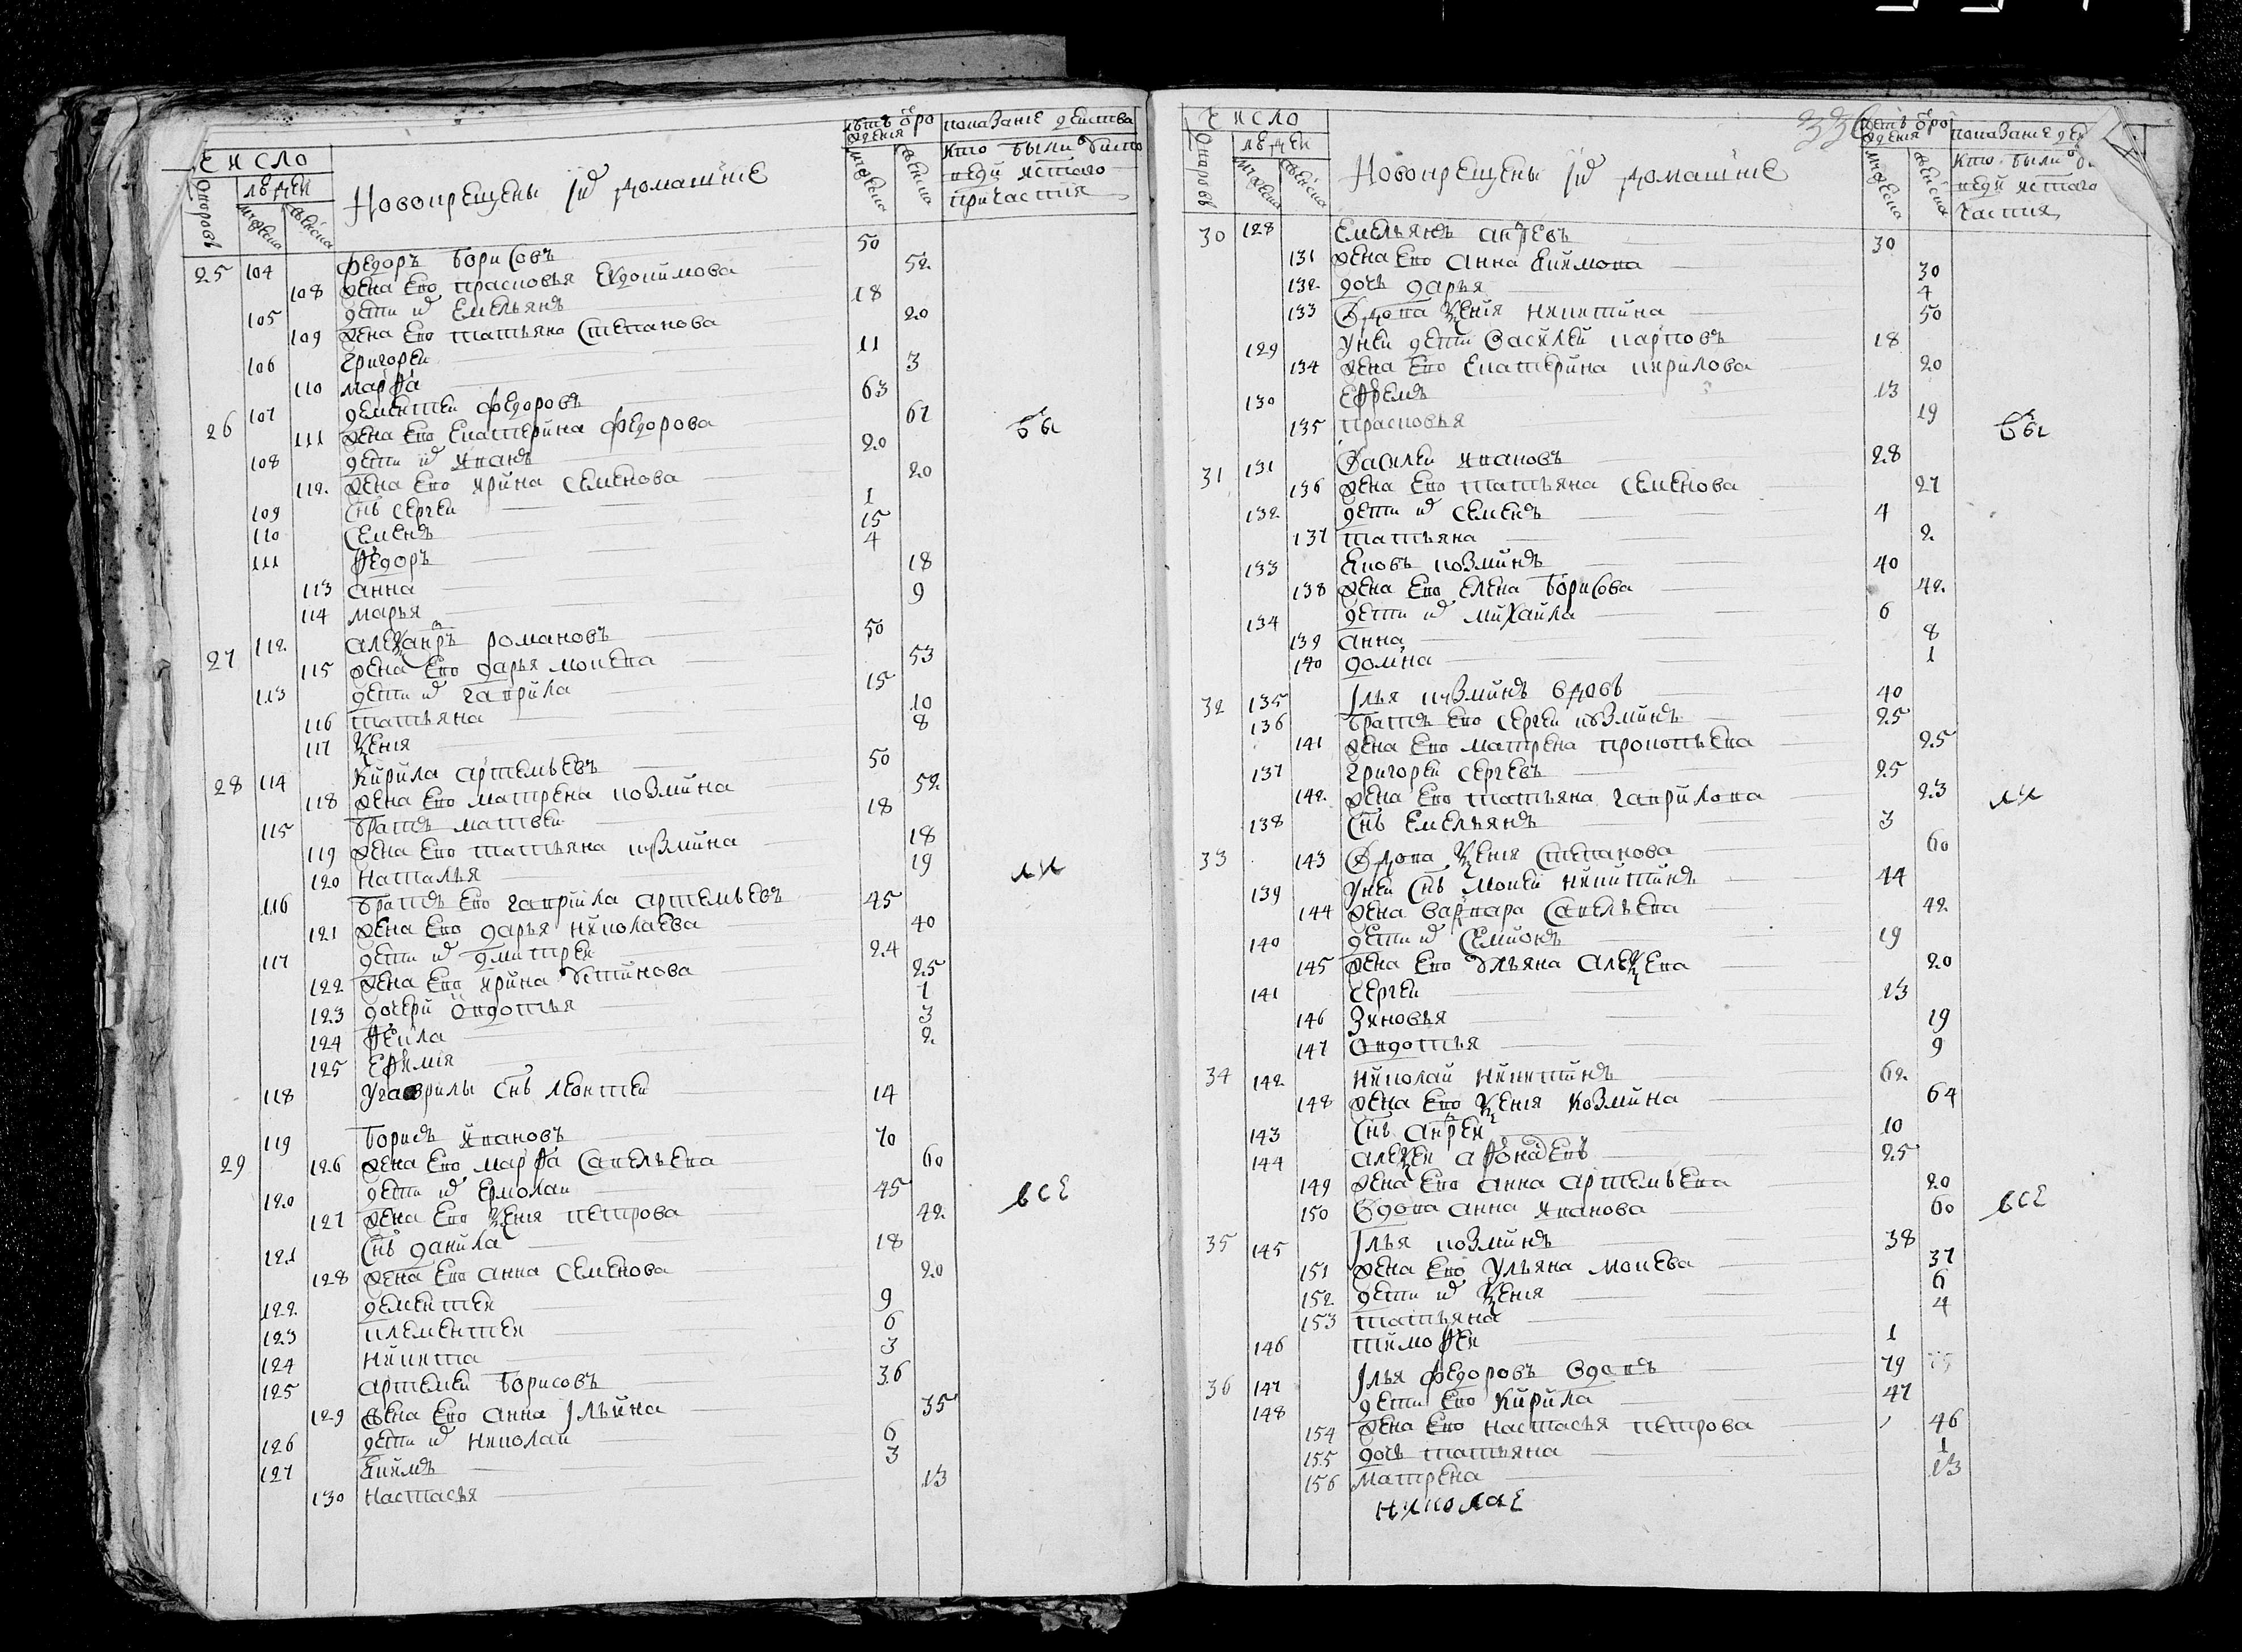 число
людей
дворовъ
мужеска
женска
Новокрещены и домашние
летъ от рождения
мужеска
женска
показание действа
кто были у испо
веди и стаго
причастия
25 104 Федоръ Борисовъ 50
108 жена ево Прасковья Евдокимова 52
105 дети их Емельянъ 18
109 жена ево Татьяна Степанова 20
106 Григореи 11
110 Марфа 3
26 107 Дементеи Федоровъ 63
111 жена ево Екатерина Федорова 61
бы
108 дети их Иванъ 20
112 жена ево Ирина Семенова 20
109 снъ Сергеи 1
110 Семенъ 15
111 Федоръ 4
113 Анна 18
114 Марья 9
27 112 Алеѯандръ Романовъ 50
115 жена ево Дарья Мокева 53
113 дети их Гаврила 15
116 Татьяна 10
117 Ѯения 8
28 114 Кирила Артемьевъ 50
118 жена ево Матрена Козмина 52
115 братъ Матвеи 18
119 жена ево Татьяна Кузмина 18
120 Наталья 19
ли
116 братъ ево Гаврила Артемьевъ 45
121 жена ево Дарья Николаева 40
117 дети их Дмитреи 24
122 жена ево Ирина Устинова 25
123 дочери Овдотья 1
124 Фекла 3
125 Ефимия 2
118 у Гаврилы снъ Леонтеи 14
29 119 Борисъ Ивановъ 70
126 жена ево Марфа Савельева 60
120 дети их Ермолаи 45
127 жена ево Ѯения Петрова 42
все
121 снъ Данила 18
128 жена ево Анна Семенова 20
122 Дементеи 9
123 Клементеи 6
124 Никита 3
125 Артемеи Борисовъ 36
129 жена ево Анна Ильина 35
126 дети их Николаи 6
127 Якимъ 3
130 Настасья 13
336
число
людей
дворовъ
мужеска
женска
Новокрещены и домашние
летъ от рождения
мужеска
женска
показание де
кто были
веди и стаго
частия
30 128 Емельянъ Андреевъ 30
131 жена ево Анна Якимова 30
132 дочь Дарья 4
133 вдова Ѯения Никитина 50
129 у неи дети Василеи Карповъ 18
134 жена ево Екатерина Кирилова 20
130 Ефремъ 13
135 Прасковья 19
бы
31 131 Василеи Ивановъ 28
136 жена ево Татьяна Семенова 27
132 дети их Семенъ 4
137 Татьяна 2
133 Яковъ Козминъ 40
138 жена ево Елена Борисова 42
134 дети их Михаила 6
139 Анна 8
140 Домна 1
32 135 Илья Кузминъ вдовъ 40
136 братъ ево Сергеи Козминъ 25
141 жена ево Матрена Прокопьева 25
137 Григореи Сергеевъ 25
142 жена ево Татьяна Гаврилова 23
ли
138 снъ Емельянъ 3
33 143 вдова Ѯения Степанова 60
139 у неи снъ Мокеи Никитинъ 44
144 жена Варвара Савельева 42
140 дети их Семионъ 19
145 жена ево Ульяна Алеѯева 20
141 Сергеи 13
146 Зиновья 19
147 Овдотья 9
34 142 Николаи Никитинъ 62
148 жена ево Ѯения Козмина 64
143 снъ Андреи 10
144 Алеѯеи Афонасевъ 25
149 жена ево Анна Артемьева 20
150 вдова Анна Иванова 60
все
35 145 Илья Козминъ 38
151 жена ево Ульяна Мокева 37
152 дети их Ѯения 6
153 Татьяна 4
146 Тимофеи 1
36 147 Илья Федоровъ вдовъ 79
148 дети ево Кирила 47
154 жена ево Настасья Петрова 46
155 дочь Татьяна 1
156 Матрена 13
Николае